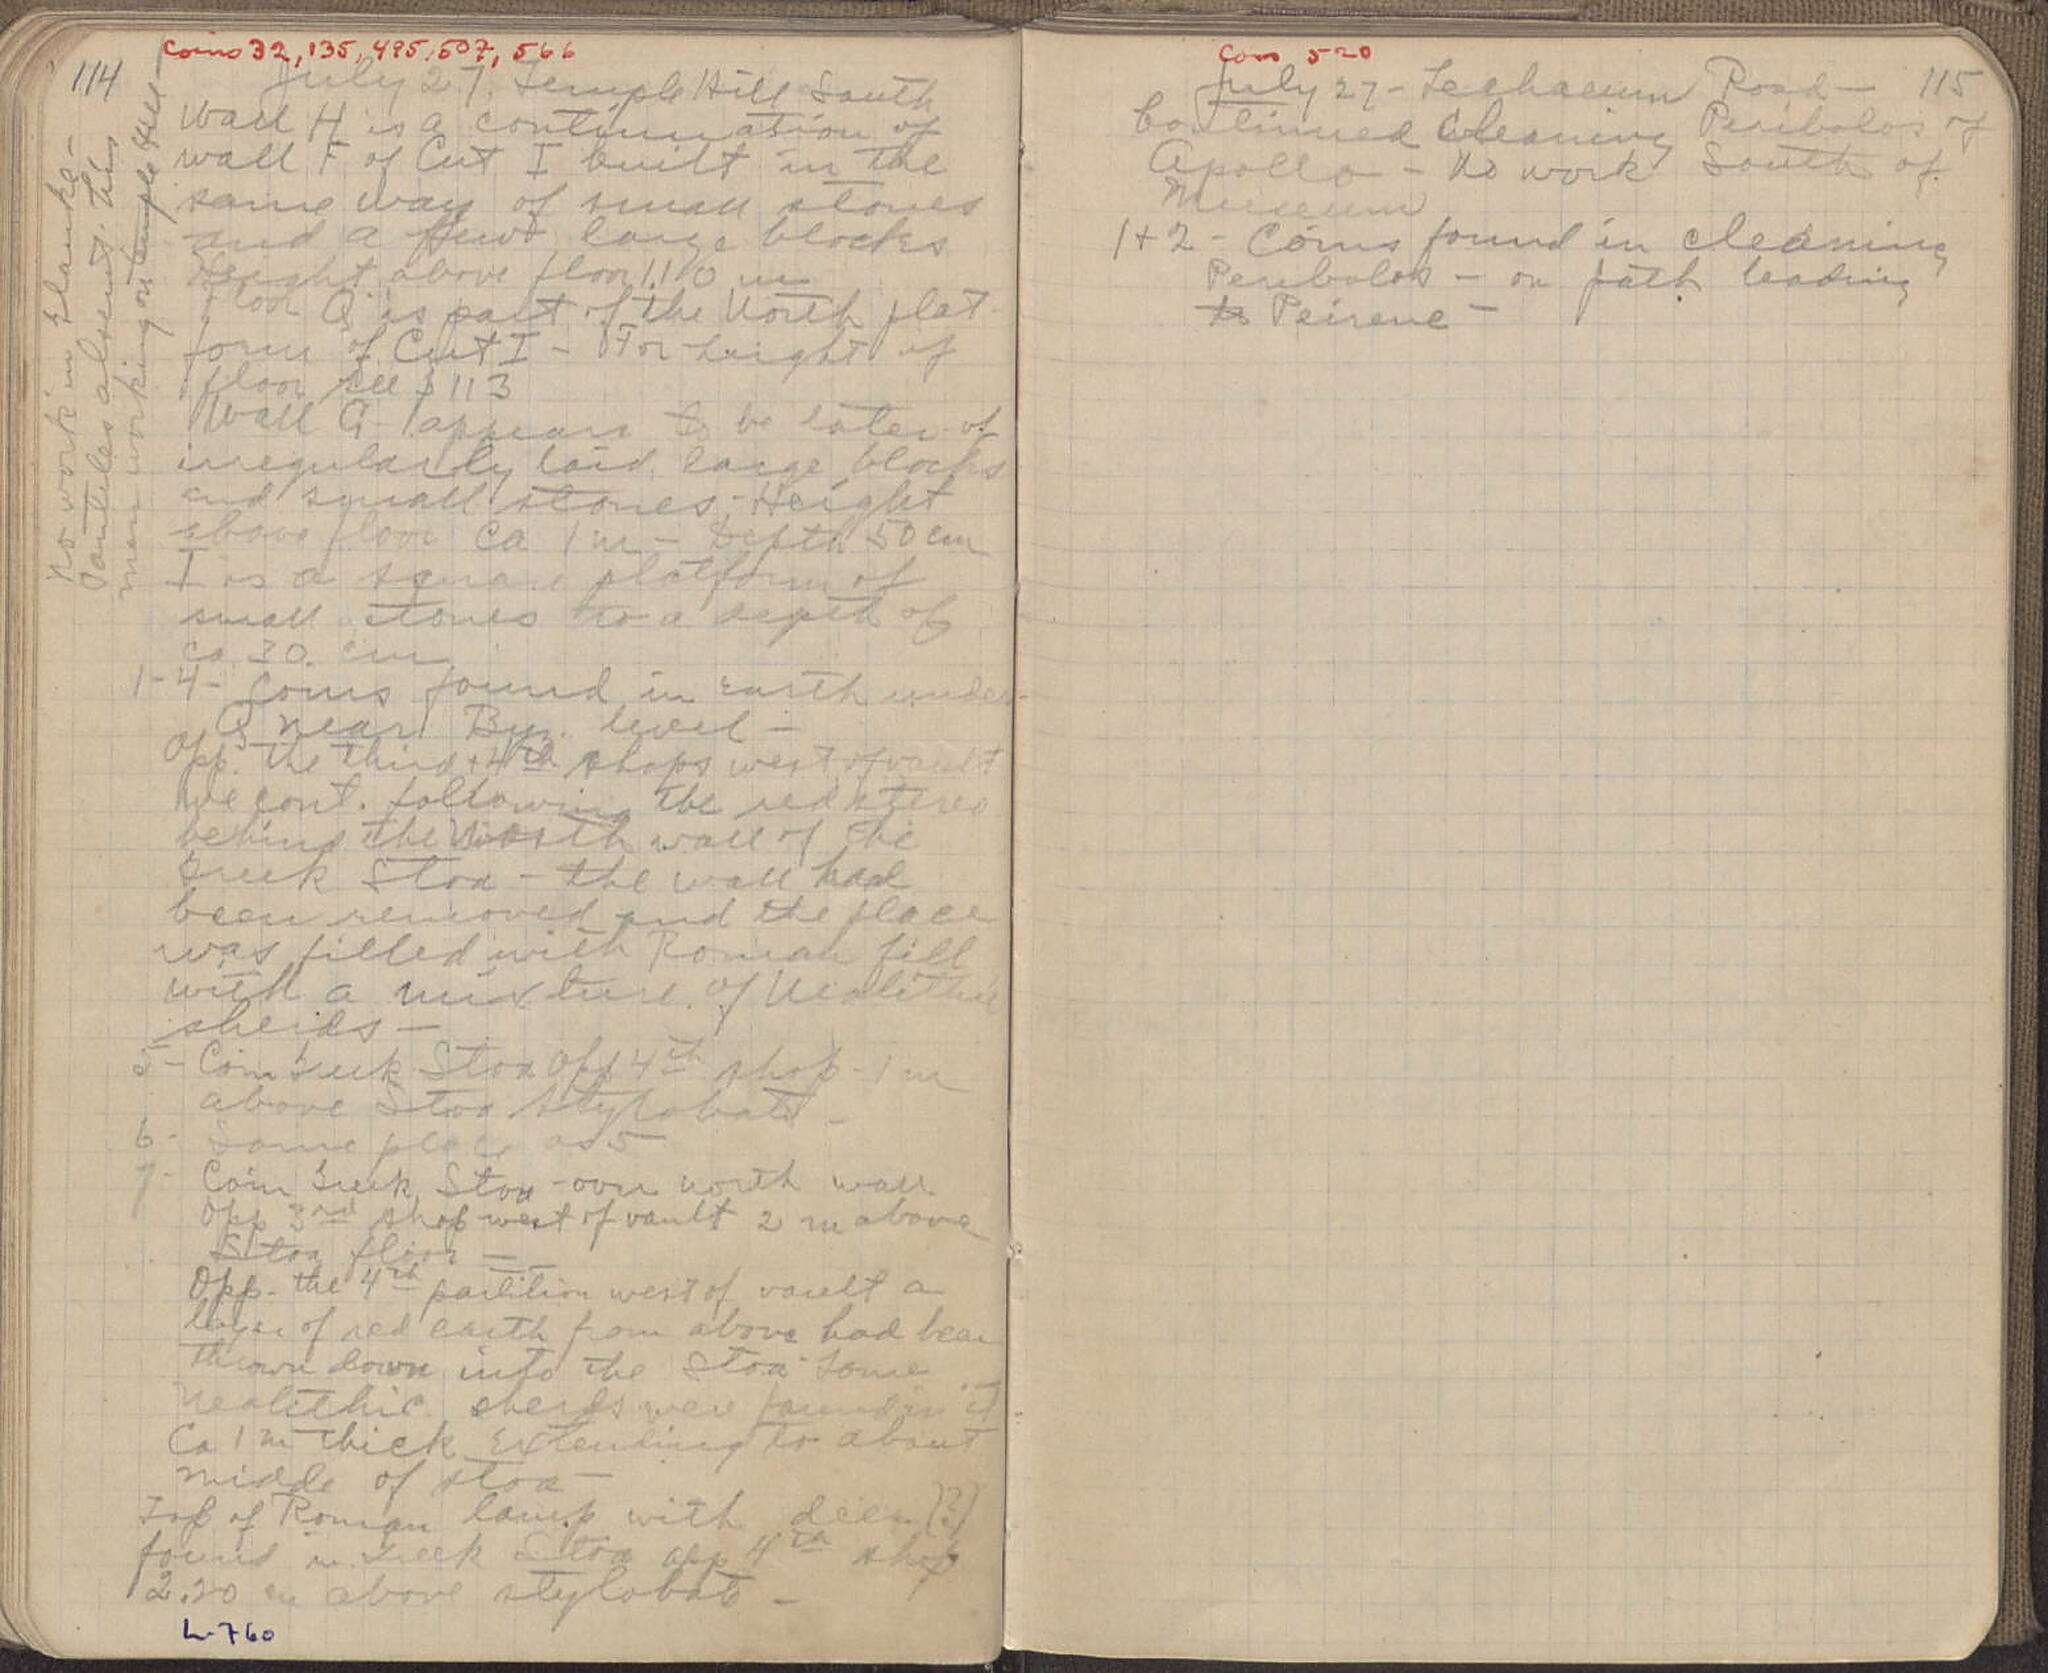 Coins 32, 135, 495, 507, 566
114
July 27. Temple Hill South
Wall H is a continuation of
wall F of Cut I built in the
same way of small stones
and a few large blocks
Height above floor 1.10 m
Floor Q is part of the North plat-
form of Cut I - For height of
floor see p 113
Wall G appears to be later of
irregularly laid large blocks
and small stones - Height
above floor ca 1 m - Depth 50 cm
I is a square platform of
small stones to a depth of
ca 30 cm
1-4- Coins found in earth under-
Q near Byz. level -
Opp. the third + 4th shops west of vault
We cont. following the red stereo
behind the North wall of the
Greek Stoa - the wall had
been removed and the place
was filled with Roman fill
with a mixture of Neolithic
sherds -
5- Coin Greek Stoa Opp 4th shop - 1 m
above Stoa stylobate -
6- Same place as 5
7- Coin Greek Stoa - over north wall
Opp 3rd shop west of vault 2 m above
Stoa floor -
Opp. the 4th partition west of vault a
layer of red earth from above had been
thrown down into the Stoa Some
Neolithic sherds were found in it
Ca 1 m thick extending to about
middle of stoa -
Top of Roman lamp with deer (?)
found in Greek Stoa opp 4th shop
2.20 m above stylobate -
L-760
No work in
Pantiles absent. his
men working on temple Hill -
Coin 520
July 27 - Lechaeum Road - 115
Continued cleaning Peribolos of
Apollo - No work South of
Museum
1+2 - Coins found in cleaning
Peribolos - on path leading
to Peirene -